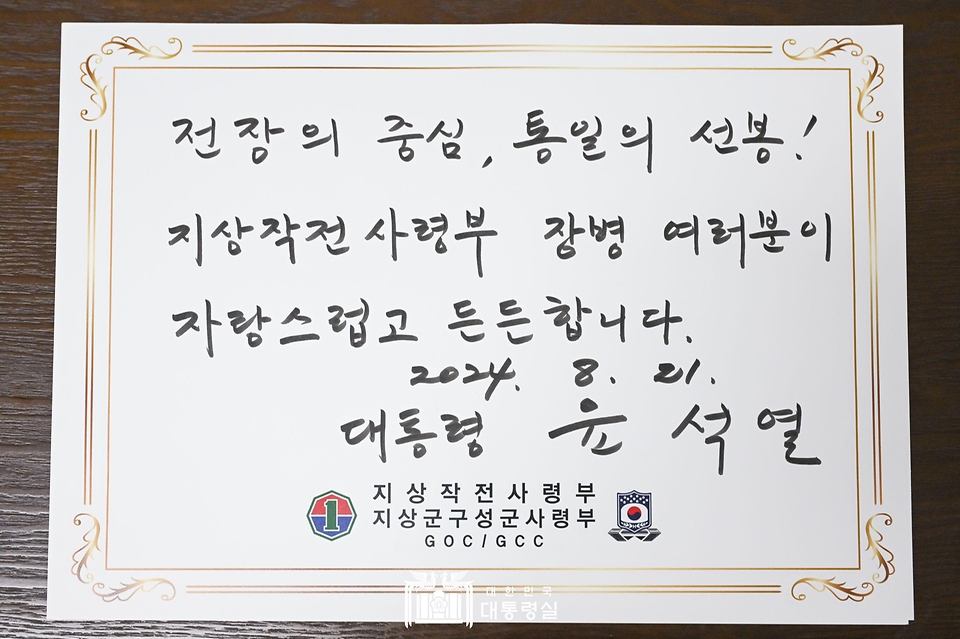 전장의 중심, 통일의 선봉!
지상작전사령부 장병 여러분이
자랑스럽고 든든합니다.
2024. 8. 21.
대통령 윤석열
1
지상작전사령부
지상군구성군사령부
GOC/GCC
대한민국
대통령실